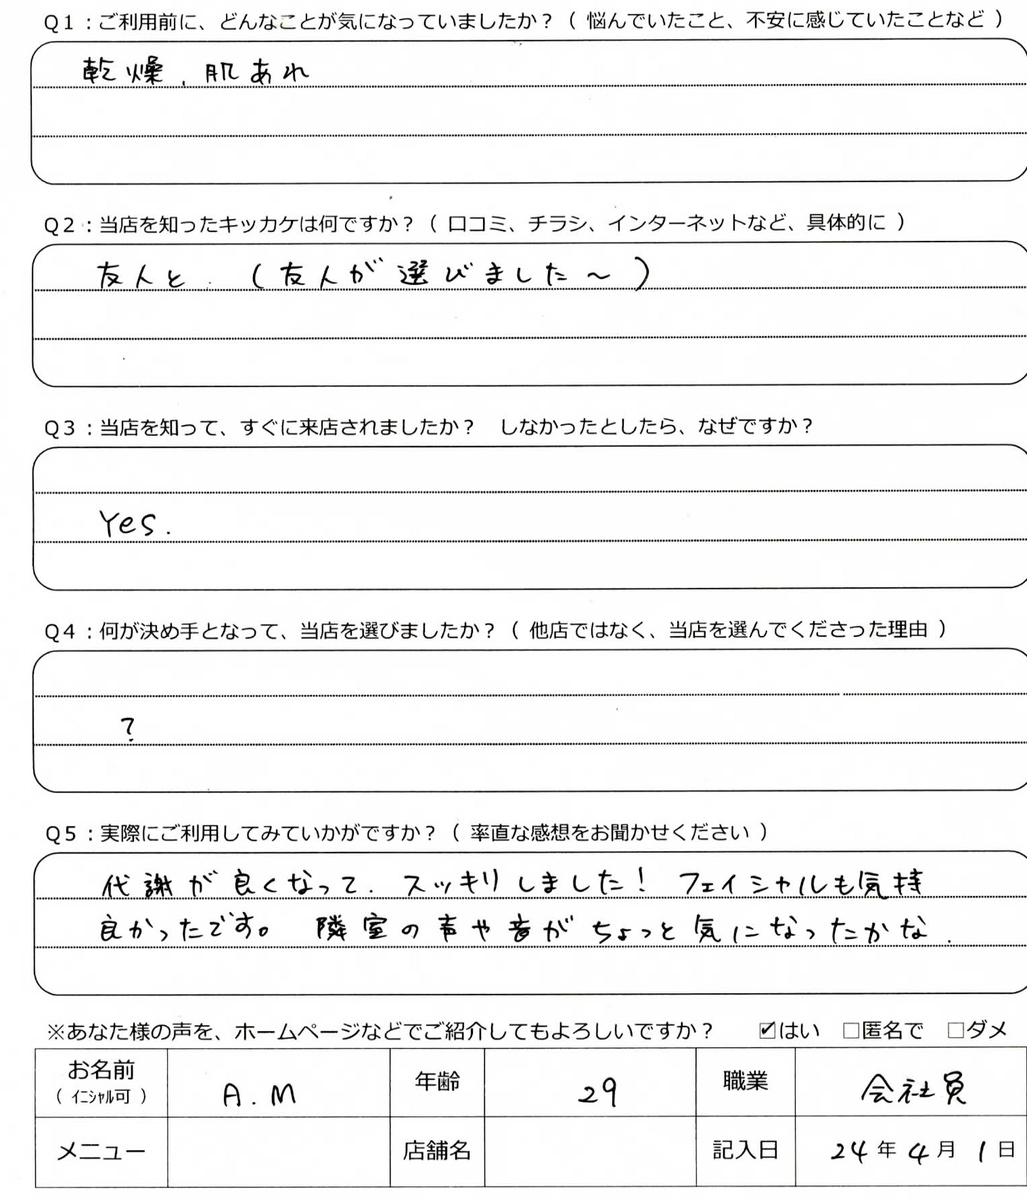 Q1：ご利用前に、どんなことが気になっていましたか？（ 悩んでいたこと、不安に感じていたことなど ）
乾燥、肌あれ
Q2：当店を知ったキッカケは何ですか？（ 口コミ、チラシ、インターネットなど、具体的に ）
友人と．（友人が選びました～）
Q3：当店を知って、すぐに来店されましたか？　しなかったとしたら、なぜですか？
Yes.
Q4：何が決め手となって、当店を選びましたか？（ 他店ではなく、当店を選んでくださった理由 ）
?
Q5：実際にご利用してみていかがですか？（ 率直な感想をお聞かせください ）
代謝が良くなって．スッキリしました！ フェイシャルも気持
良かったです。 隣室の声や音がちょっと気になったかな．
※あなた様の声を、ホームページなどでご紹介してもよろしいですか？　☑はい　□匿名で　□ダメ
お名前（ イニシャル可 ） A.M 年齢 29 職業 会社員
メニュー 店舗名 記入日 24年4月1日